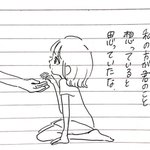 私の方が君のこと
想っていると
思っていたな。